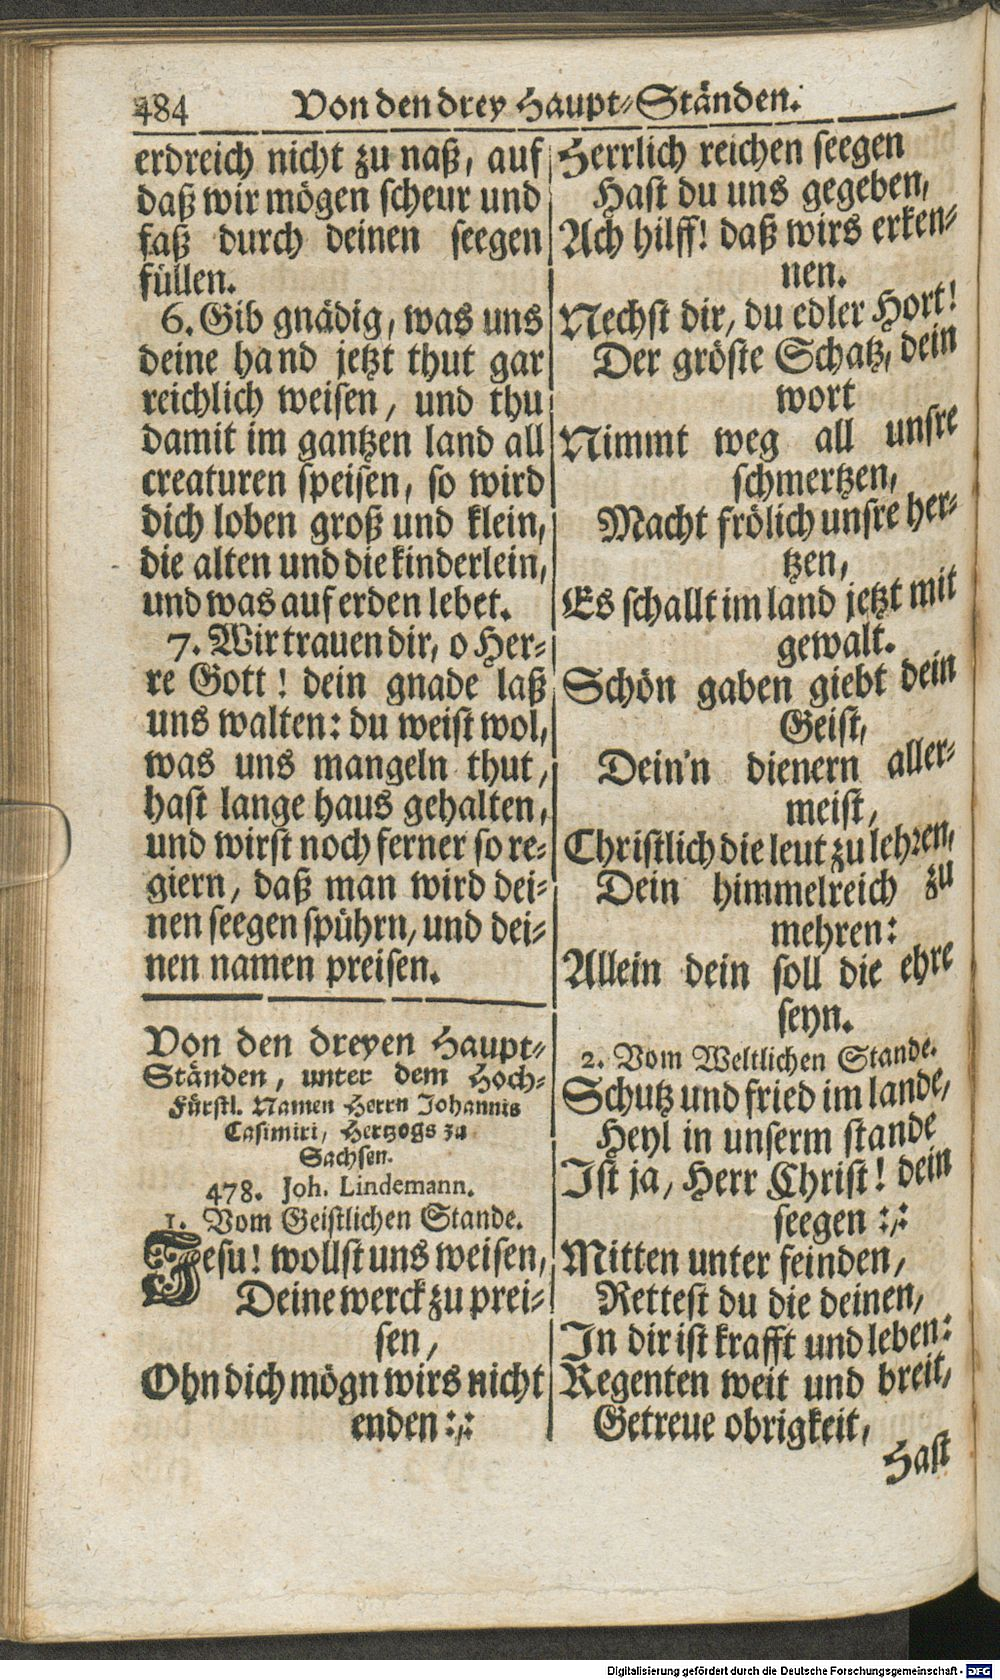 484 Von den drey Haupt-Ständen.
erdreich nicht zu naß, auf
daß wir mögen scheur und
faß durch deinen seegen
füllen.
6. Gib gnädig, was uns
deine hand jetzt thut gar
reichlich weisen, und thu
damit im gantzen land all
creaturen speisen, so wird
dich loben groß und klein,
die alten und die kinderlein,
und was auf erden lebet.
7. Wir trauen dir, o Her-
re Gott! dein gnade laß
uns walten: du weist wol,
was uns mangeln thut,
hast lange haus gehalten,
und wirst noch ferner so re-
giern, daß man wird dei-
nen seegen spührn, und dei-
nen namen preisen.
Von den dreyen Haupt-
Ständen, unter dem Hoch-
Fürstl. Namen Herrn Johannis
Casimiri, Hertzogs zu
Sachsen.
478. Joh. Lindemann.
1. Vom Geistlichen Stande.
Jesu! wollst uns weisen,
Deine werck zu prei-
sen,
Ohn dich mögn wirs nicht
enden :,:
Herrlich reichen seegen
Hast du uns gegeben,
Ach hilff! daß wirs erken-
nen.
Nechst dir, du edler Hort!
Der gröste Schatz, dein
wort
Nimmt weg all unsre
schmertzen,
Macht frölich unsre her-
tzen,
Es schallt im land jetzt mit
gewalt.
Schön gaben giebt dein
Geist,
Dein'n dienern aller-
meist,
Christlich die leut zu lehren,
Dein himmelreich zu
mehren:
Allein dein soll die ehre
seyn.
2. Vom Weltlichen Stande.
Schutz und fried im lande,
Heyl in unserm stande
Ist ja, Herr Christ! dein
seegen :,:
Mitten unter feinden,
Rettest du die deinen,
In dir ist krafft und leben:
Regenten weit und breit,
Getreue obrigkeit,
Hast
Digitalisierung gefördert durch die Deutsche Forschungsgemeinschaft - DFG